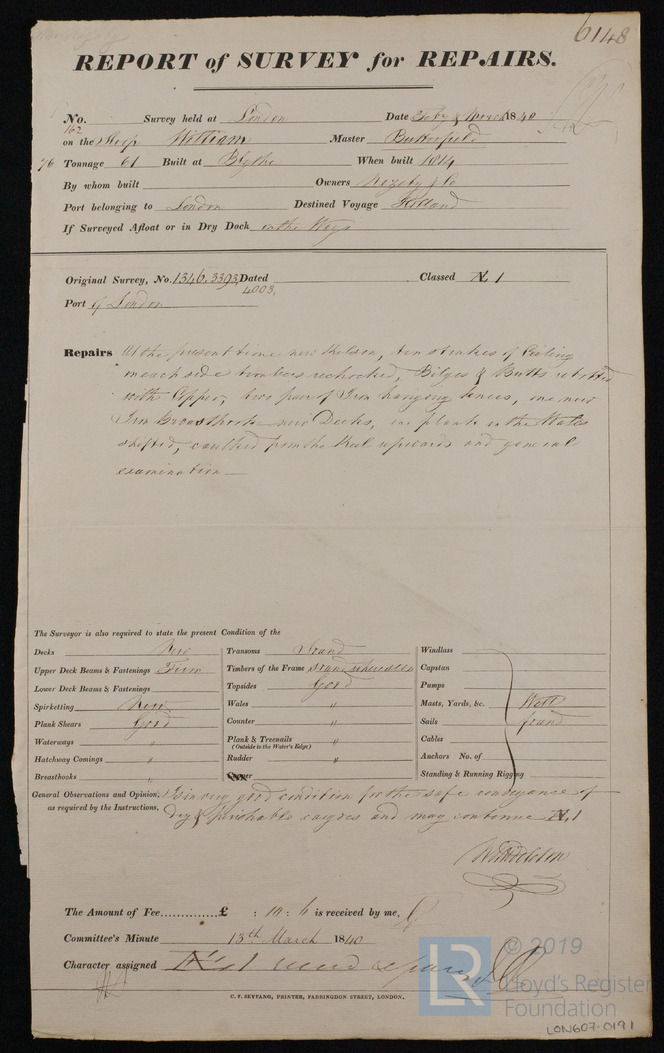 6148
REPORT of SURVEY for REPAIRS.
No. Survey held at London Date Feby & March 1840
162
on the Sloop William Master Butterfield
76 Tonnage 61 Built at Blythe When built 1814
By whom built Owners & Co
Port belonging to London Destined Voyage Holland
If Surveyed Afloat or in Dry Dock on the Ways
Original Survey, No. 1346. 3393, Dated Classed Æ 1
4003.
Port of London
Repairs At the present time new Kelson, ten strakes of Ceiling
on each side timbers rechocked, Bilges & Butts rebolted
with Copper, two pair of Iron hanging knees, one new
Iron Breasthook new Decks, one plank in the Wales
shifted, caulked from the Keel upwards and general
examination
The Surveyor is also required to state the present Condition of the
Decks New
Upper Deck Beams & Fastenings Firm
Lower Deck Beams & Fastenings
Spirketting New
Plank Shears Good
Waterways "
Hatchway Comings "
Breasthooks "
Transoms Sound
Timbers of the Frame where seen
Topsides Good
Wales "
Counter "
Plank & Treenails "
(Outside to the Water's Edge)
Rudder "
Windlass
Capstan
Pumps
Masts, Yards, &c. Well
Sails found
Cables
Anchors No. of
Standing & Running Rigging
General Observations and Opinion, Is in very good condition for the safe conveyance of
as required by the Instructions, dry & perishable cargoes and may continue Æ 1
The Amount of Fee.............£ : 10 : 6 is received by me,
Committee's Minute 13th March 1840
Character assigned Æ 1
C. F. SEYFANG, PRINTER, FARRINGDON STREET, LONDON.
LR
© 2019
Lloyd's Register
Foundation
LON607-0191